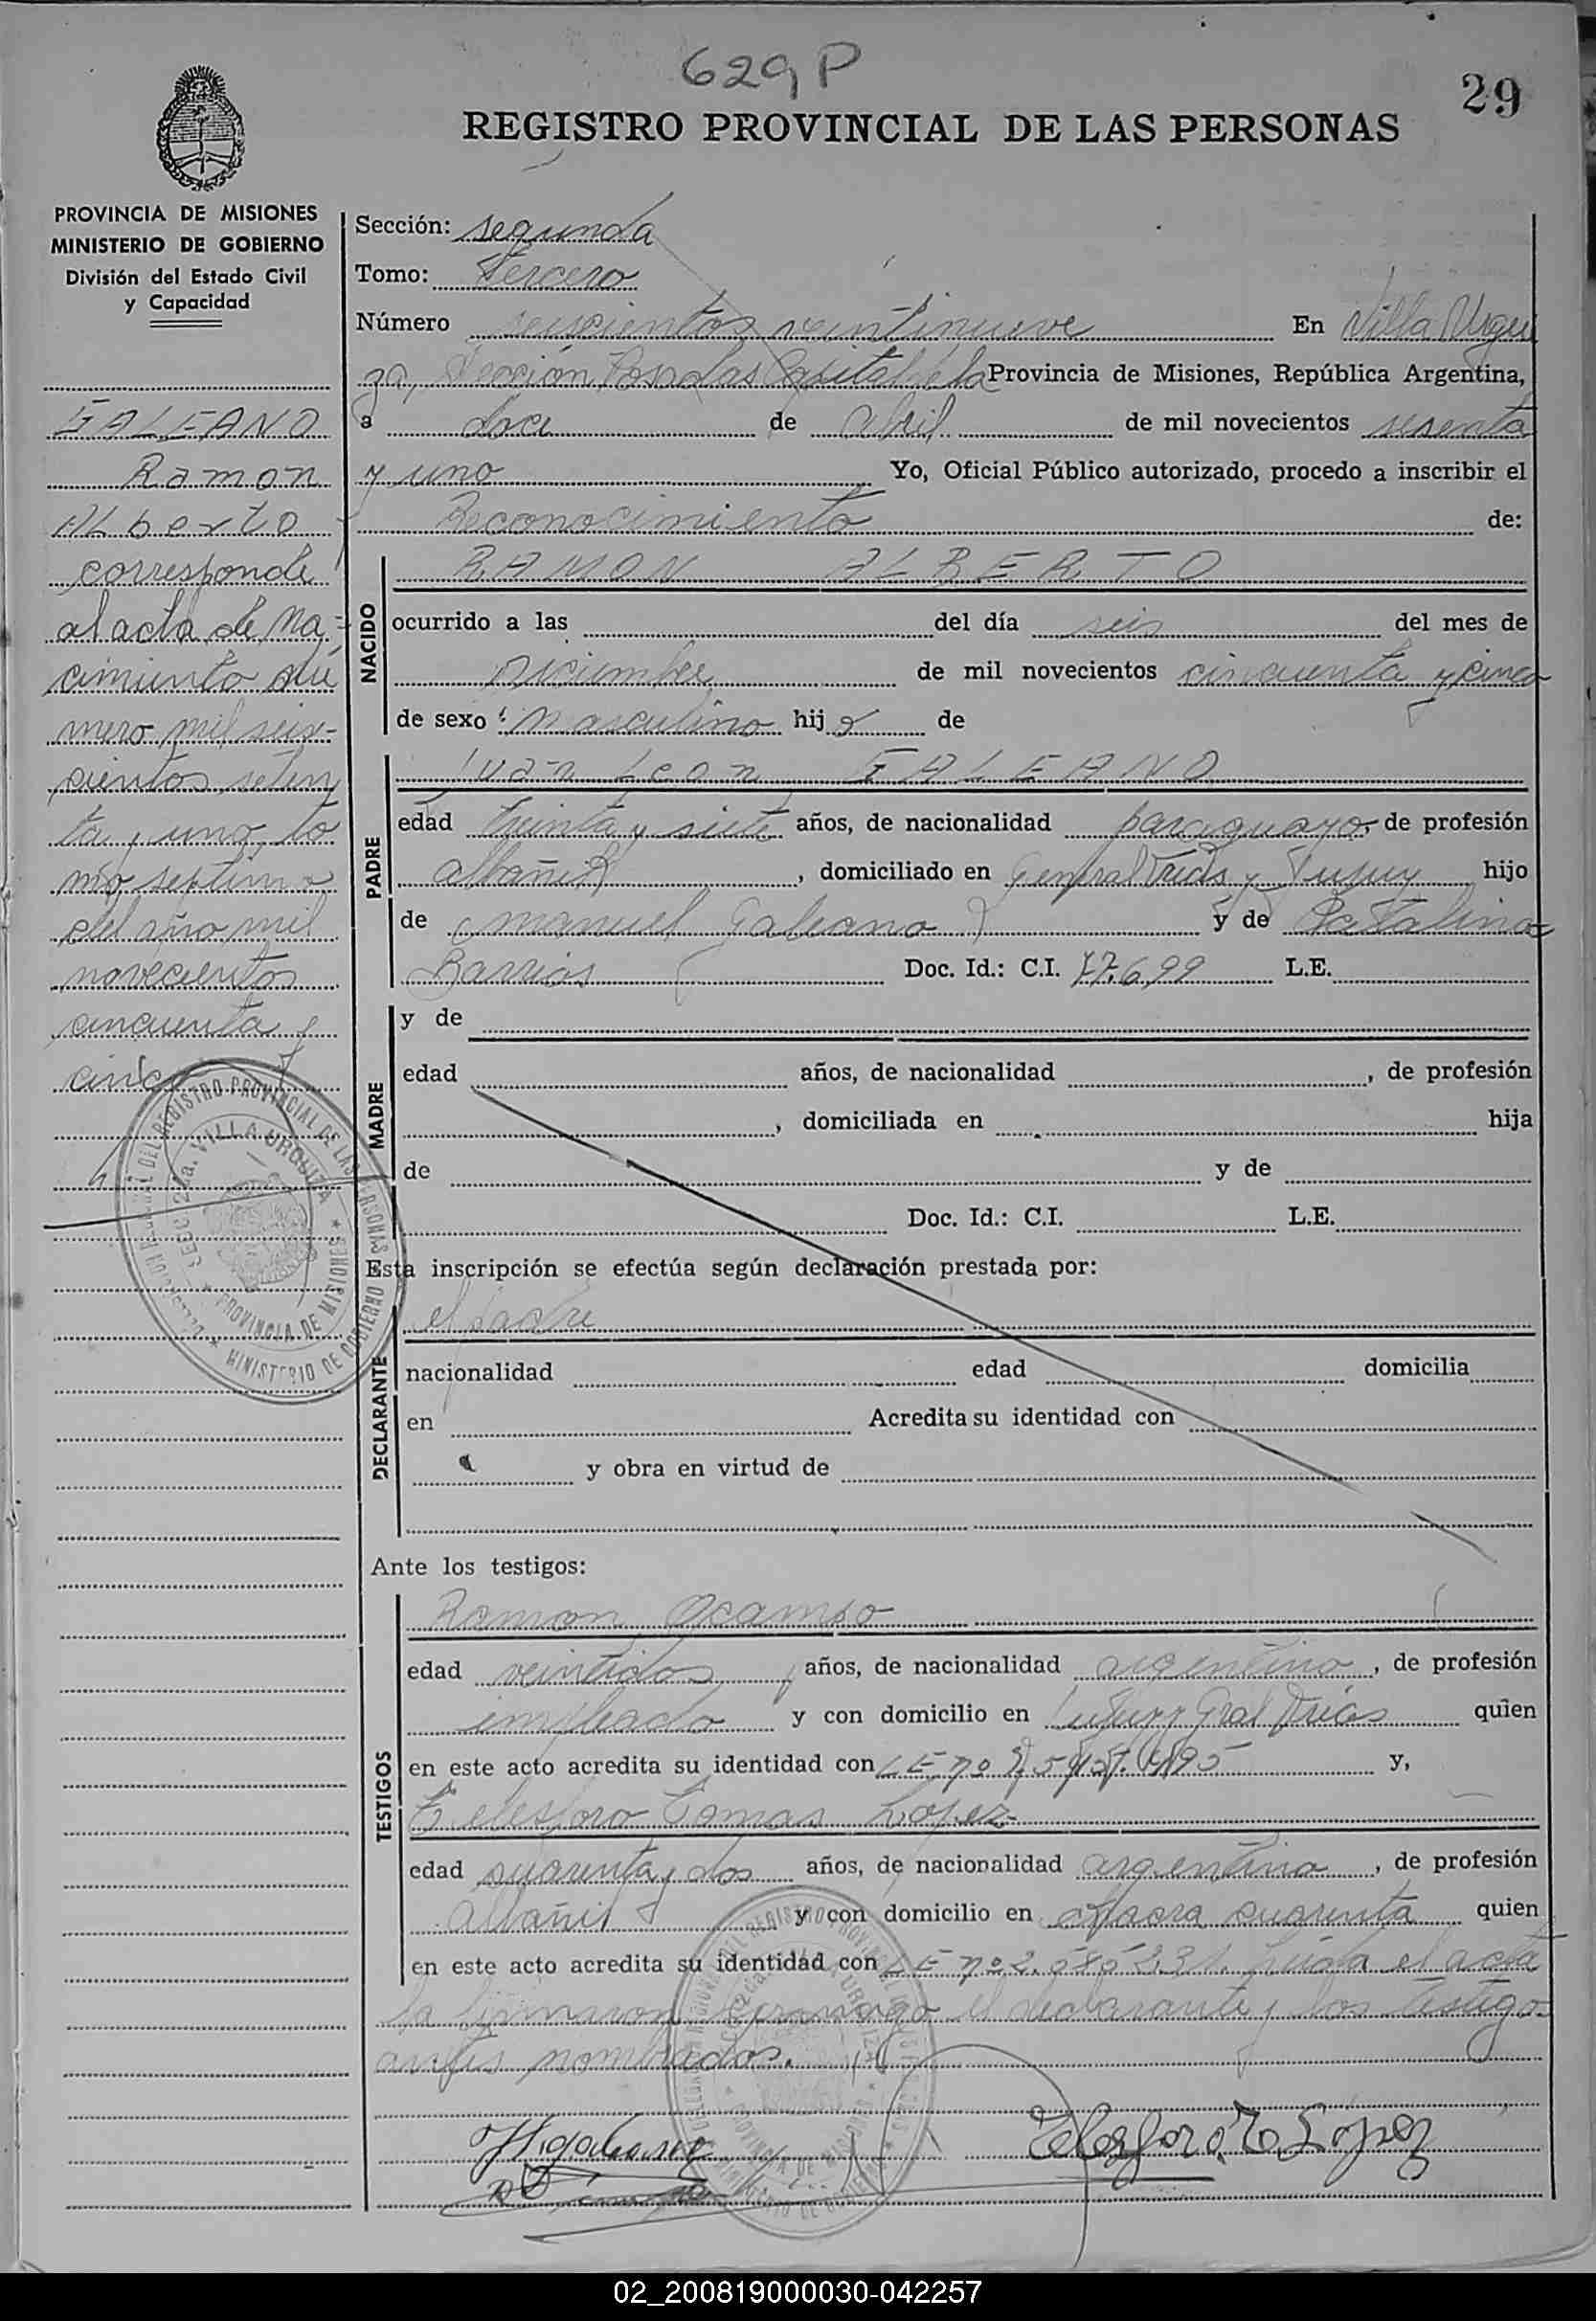 629 P
29
REGISTRO PROVINCIAL DE LAS PERSONAS
PROVINCIA DE MISIONES
MINISTERIO DE GOBIERNO
División del Estado Civil
y Capacidad
GALEANO
Ramon
ALberto
corresponde
al acta de na=
cimiento nú
mero mil seis-
cientos seten
ta y uno, to
mo septimo
del año mil
novecientos
cincuenta y
cinco
Sección: segunda
Tomo: Tercero
Número seiscientos veintinueve En Villa Urqui
za, Sección Posadas Capital de la Provincia de Misiones, República Argentina,
a doce de Abril de mil novecientos sesenta
y uno Yo, Oficial Público autorizado, procedo a inscribir el
Reconocimiento de:
NACIDO
RAMON ALBERTO
ocurrido a las del día seis del mes de
Diciembre de mil novecientos cincuenta y cinco
de sexo: masculino hijo de
PADRE
Juan Leon GALEANO
edad treinta y siete años, de nacionalidad paraguayo, de profesión
albañil, domiciliado en General Urias y Jujuy hijo
de Manuel Galeano y de Catalina
Barrios Doc. Id.: C.I. 77.699 L.E.
MADRE
y de
edad años, de nacionalidad , de profesión
, domiciliada en hija
de y de
Doc. Id.: C.I. L.E.
Esta inscripción se efectúa según declaración prestada por:
DECLARANTE
el padre
nacionalidad edad domicilia
en Acredita su identidad con
y obra en virtud de
Ante los testigos:
TESTIGOS
Ramon Ocampo
edad veintidos años, de nacionalidad argentino, de profesión
empleado y con domicilio en Jujuy y Gral Urias quien
en este acto acredita su identidad con LE nº y,
Telesforo Tomas Lopez
edad cuarenta y dos años, de nacionalidad argentino, de profesión
Albañil y con domicilio en chacra cuarenta quien
en este acto acredita su identidad con LE nº 2. Leida el acta
la firmaron conmigo el declarante y los testigo
antes nombrados.
DELEGACION REGIONAL DEL REGISTRO PROVINCIAL DE LAS PERSONAS
SECC. 2da. VILLA URQUIZA
PROVINCIA DE MISIONES
MINISTERIO DE GOBIERNO
Telesforo To López
02_200819000030-042257